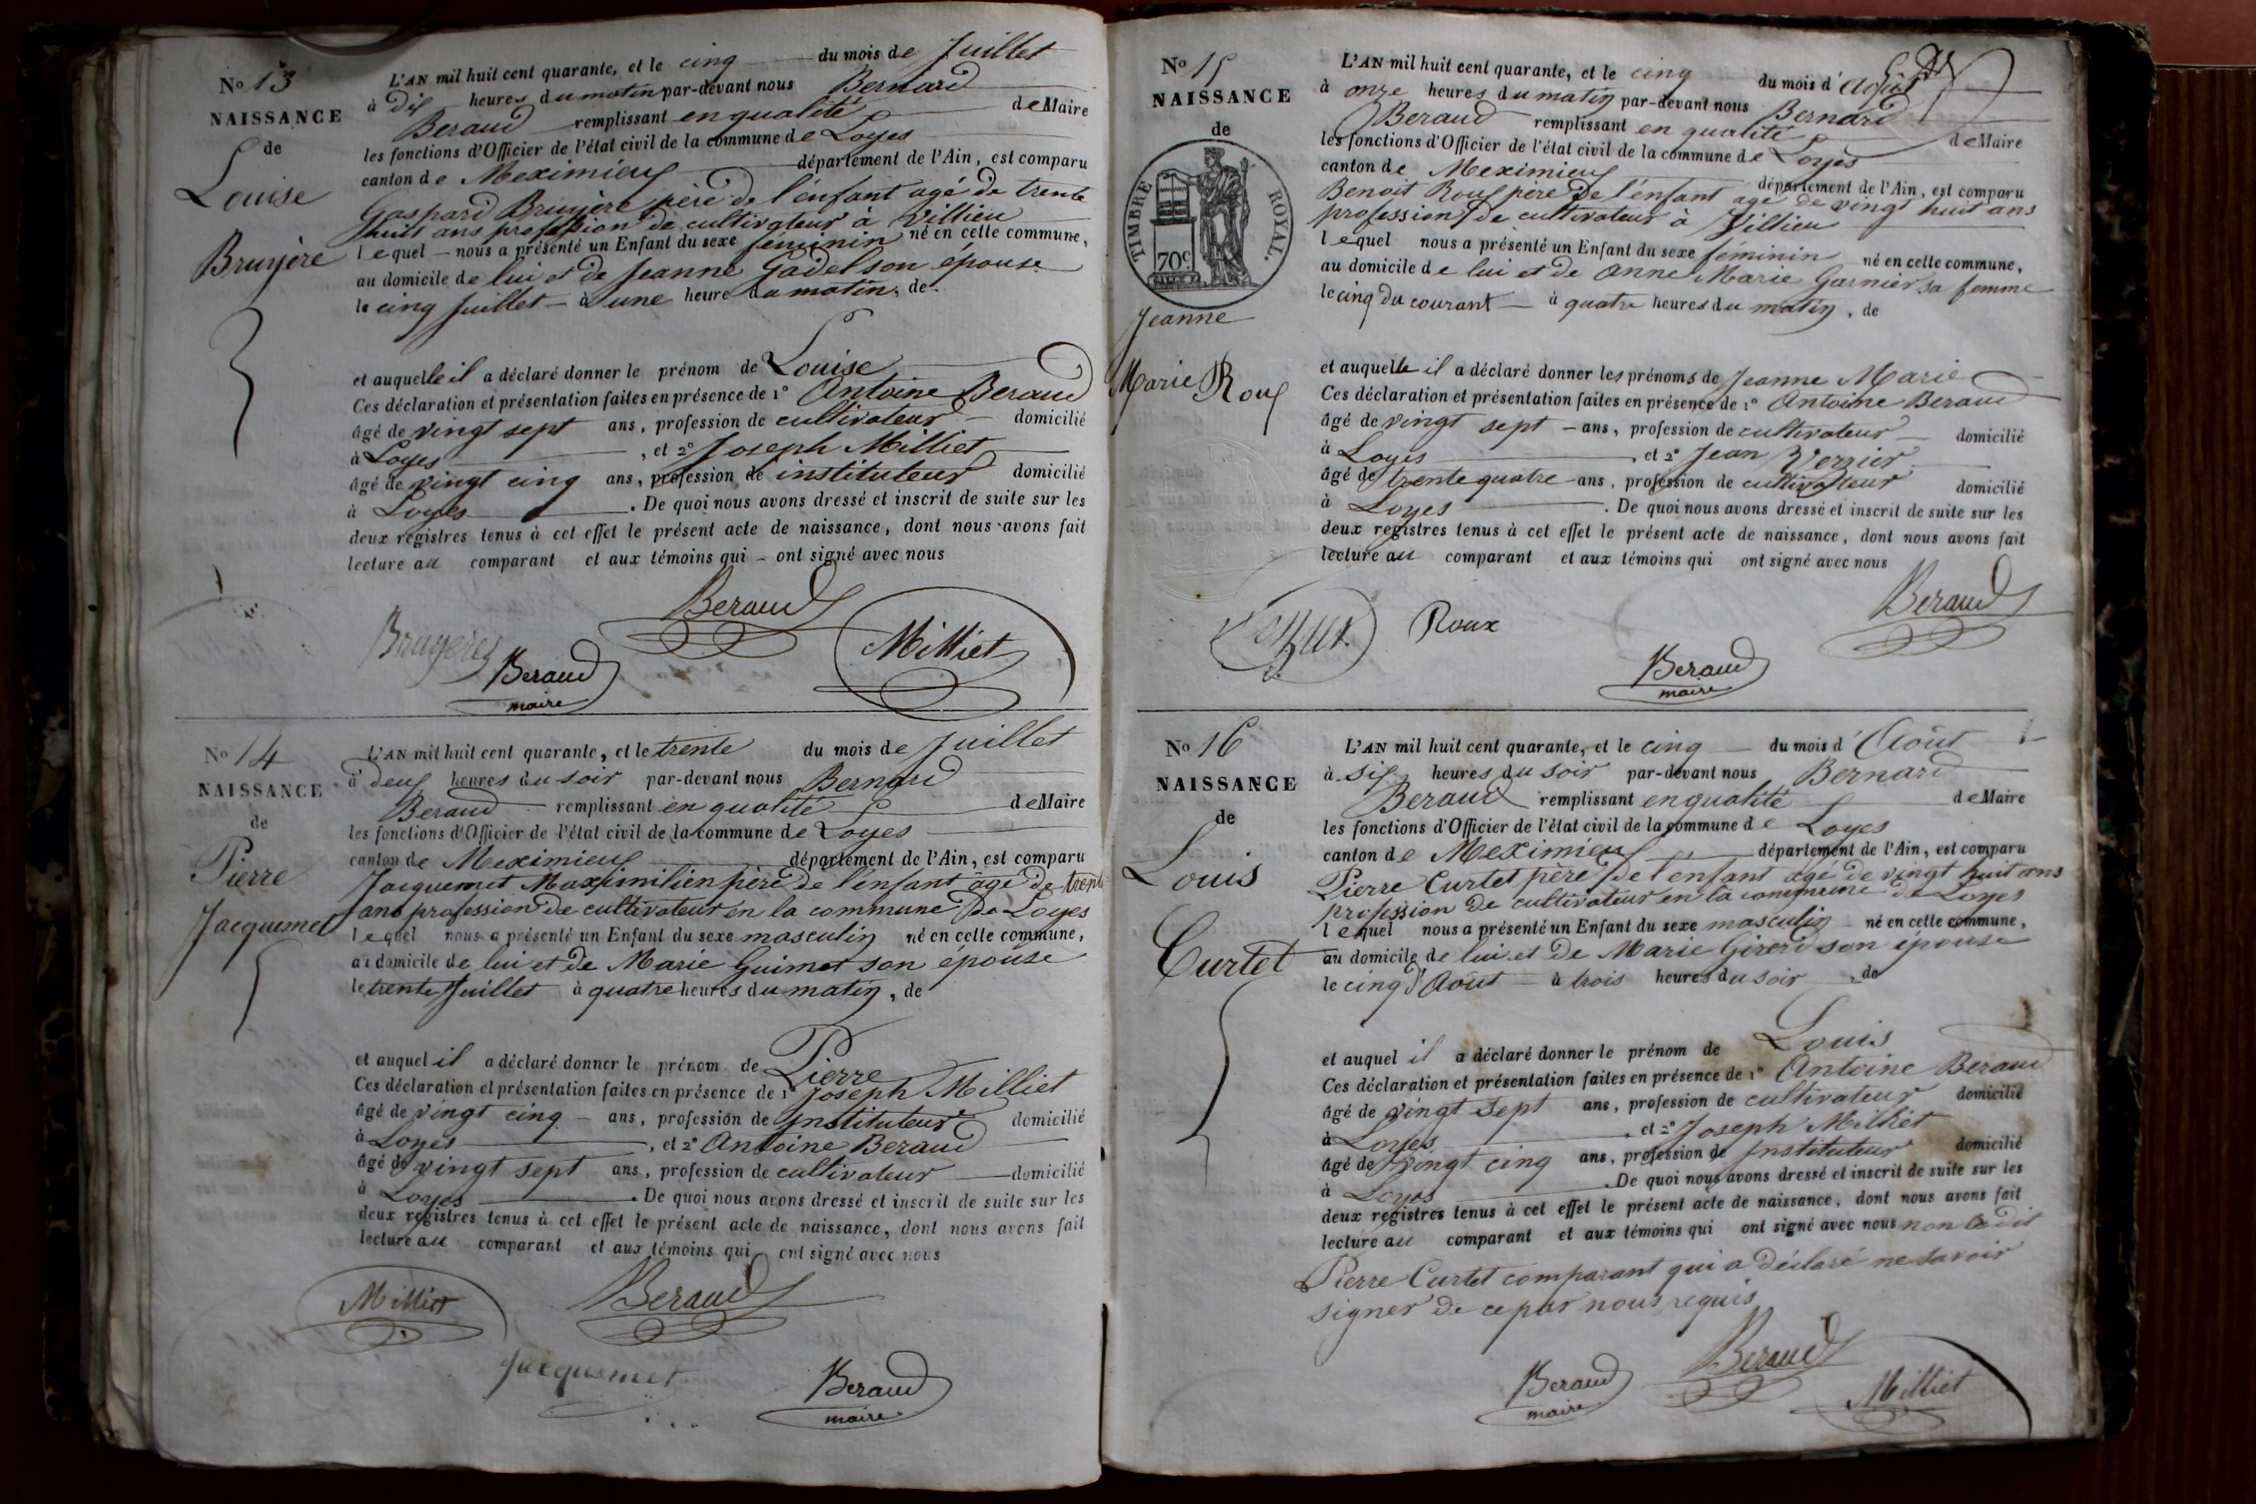 No 13
NAISSANCE
de
Louise
Bruyère
L'AN mil huit cent quarante, et le cinq du mois de Juillet
à dix heures du matin par-devant nous Bernard
Beraud remplissant en qualité de Maire
les fonctions d'Officier de l'état civil de la commune de Loyes
canton de Meximieux département de l'Ain, est comparu
Gaspard Bruyère père de l'enfant agé de trente
huit ans profession de cultivateur à Villieu
lequel nous a présenté un Enfant du sexe féminin né en cette commune,
au domicile de lui et de Jeanne Gadel son épouse
le cinq Juillet à une heure du matin, de
et auquelle il a déclaré donner le prénom de Louise
Ces déclaration et présentation faites en présence de 1° Antoine Beraud
âgé de vingt sept ans, profession de cultivateur domicilié
à Loyes, et 2° Joseph Milliet
âgé de vingt cinq ans, profession de instituteur domicilié
à Loyes. De quoi nous avons dressé et inscrit de suite sur les
deux registres tenus à cet effet le présent acte de naissance, dont nous avons fait
lecture au comparant et aux témoins qui ont signé avec nous
Beraud
Bruyeres
Milliet
Beraud
maire
No 14
NAISSANCE
de
Pierre
Jacquemet
L'AN mil huit cent quarante, et le trente du mois de Juillet
à deux heures du soir par-devant nous Bernard
Beraud remplissant en qualité de Maire
les fonctions d'Officier de l'état civil de la commune de Loyes
canton de Meximieux département de l'Ain, est comparu
Jacquemet Maximilien père de l'enfant âgé de trente
ans profession de cultivateur en la commune de Loyes
lequel nous a présenté un Enfant du sexe masculin né en cette commune,
au domicile de lui et de Marie Guimet son épouse
le trente Juillet à quatre heures du matin, de
et auquel il a déclaré donner le prénom de Pierre
Ces déclaration et présentation faites en présence de 1° Joseph Milliet
âgé de vingt cinq ans, profession de Instituteur domicilié
à Loyes, et 2° Antoine Beraud
âgé de vingt sept ans, profession de cultivateur domicilié
à Loyes. De quoi nous avons dressé et inscrit de suite sur les
deux registres tenus à cet effet le présent acte de naissance, dont nous avons fait
lecture au comparant et aux témoins qui ont signé avec nous
Milliet
Beraud
Jacquemet
Beraud
maire
No 15
NAISSANCE
de
TIMBRE ROYAL.
70c
Jeanne
Marie Roux
L'AN mil huit cent quarante, et le cinq du mois d'Août
à onze heures du matin par-devant nous Bernard
Beraud remplissant en qualité de Maire
les fonctions d'Officier de l'état civil de la commune de Loyes
canton de Meximieux département de l'Ain, est comparu
Benoit Roux père de l'enfant agé de vingt huit ans
profession de cultivateur à Villieu
lequel nous a présenté un Enfant du sexe féminin né en cette commune,
au domicile de lui et de Anne Marie Garnier sa femme
le cinq du courant à quatre heures du matin, de
et auquelle il a déclaré donner les prénoms de Jeanne Marie
Ces déclaration et présentation faites en présence de 1° Antoine Beraud
âgé de vingt sept ans, profession de cultivateur domicilié
à Loyes, et 2° Jean Verzier
âgé de trente quatre ans, profession de cultivateur domicilié
à Loyes. De quoi nous avons dressé et inscrit de suite sur les
deux registres tenus à cet effet le présent acte de naissance, dont nous avons fait
lecture au comparant et aux témoins qui ont signé avec nous
Beraud
Roux
Beraud
maire
No 16
NAISSANCE
de
Louis
Curtet
L'AN mil huit cent quarante, et le cinq du mois d'Août
à six heures du soir par-devant nous Bernard
Beraud remplissant en qualité de Maire
les fonctions d'Officier de l'état civil de la commune de Loyes
canton de Meximieux département de l'Ain, est comparu
Pierre Curtet père de l'enfant agé de vingt huit ans
profession de cultivateur en la commune de Loyes
lequel nous a présenté un Enfant du sexe masculin né en cette commune,
au domicile de lui et de Marie Girerd son épouse
le cinq d'Août à trois heures du soir, de
et auquel il a déclaré donner le prénom de Louis
Ces déclaration et présentation faites en présence de 1° Antoine Beraud
âgé de vingt sept ans, profession de cultivateur domicilié
à Loyes, et 2° Joseph Milliet
âgé de vingt cinq ans, profession de Instituteur domicilié
à Loyes. De quoi nous avons dressé et inscrit de suite sur les
deux registres tenus à cet effet le présent acte de naissance, dont nous avons fait
lecture au comparant et aux témoins qui ont signé avec nous non ledit
Pierre Curtet comparant qui a déclaré ne savoir
signer de ce par nous requis
Beraud
Beraud
maire
Milliet